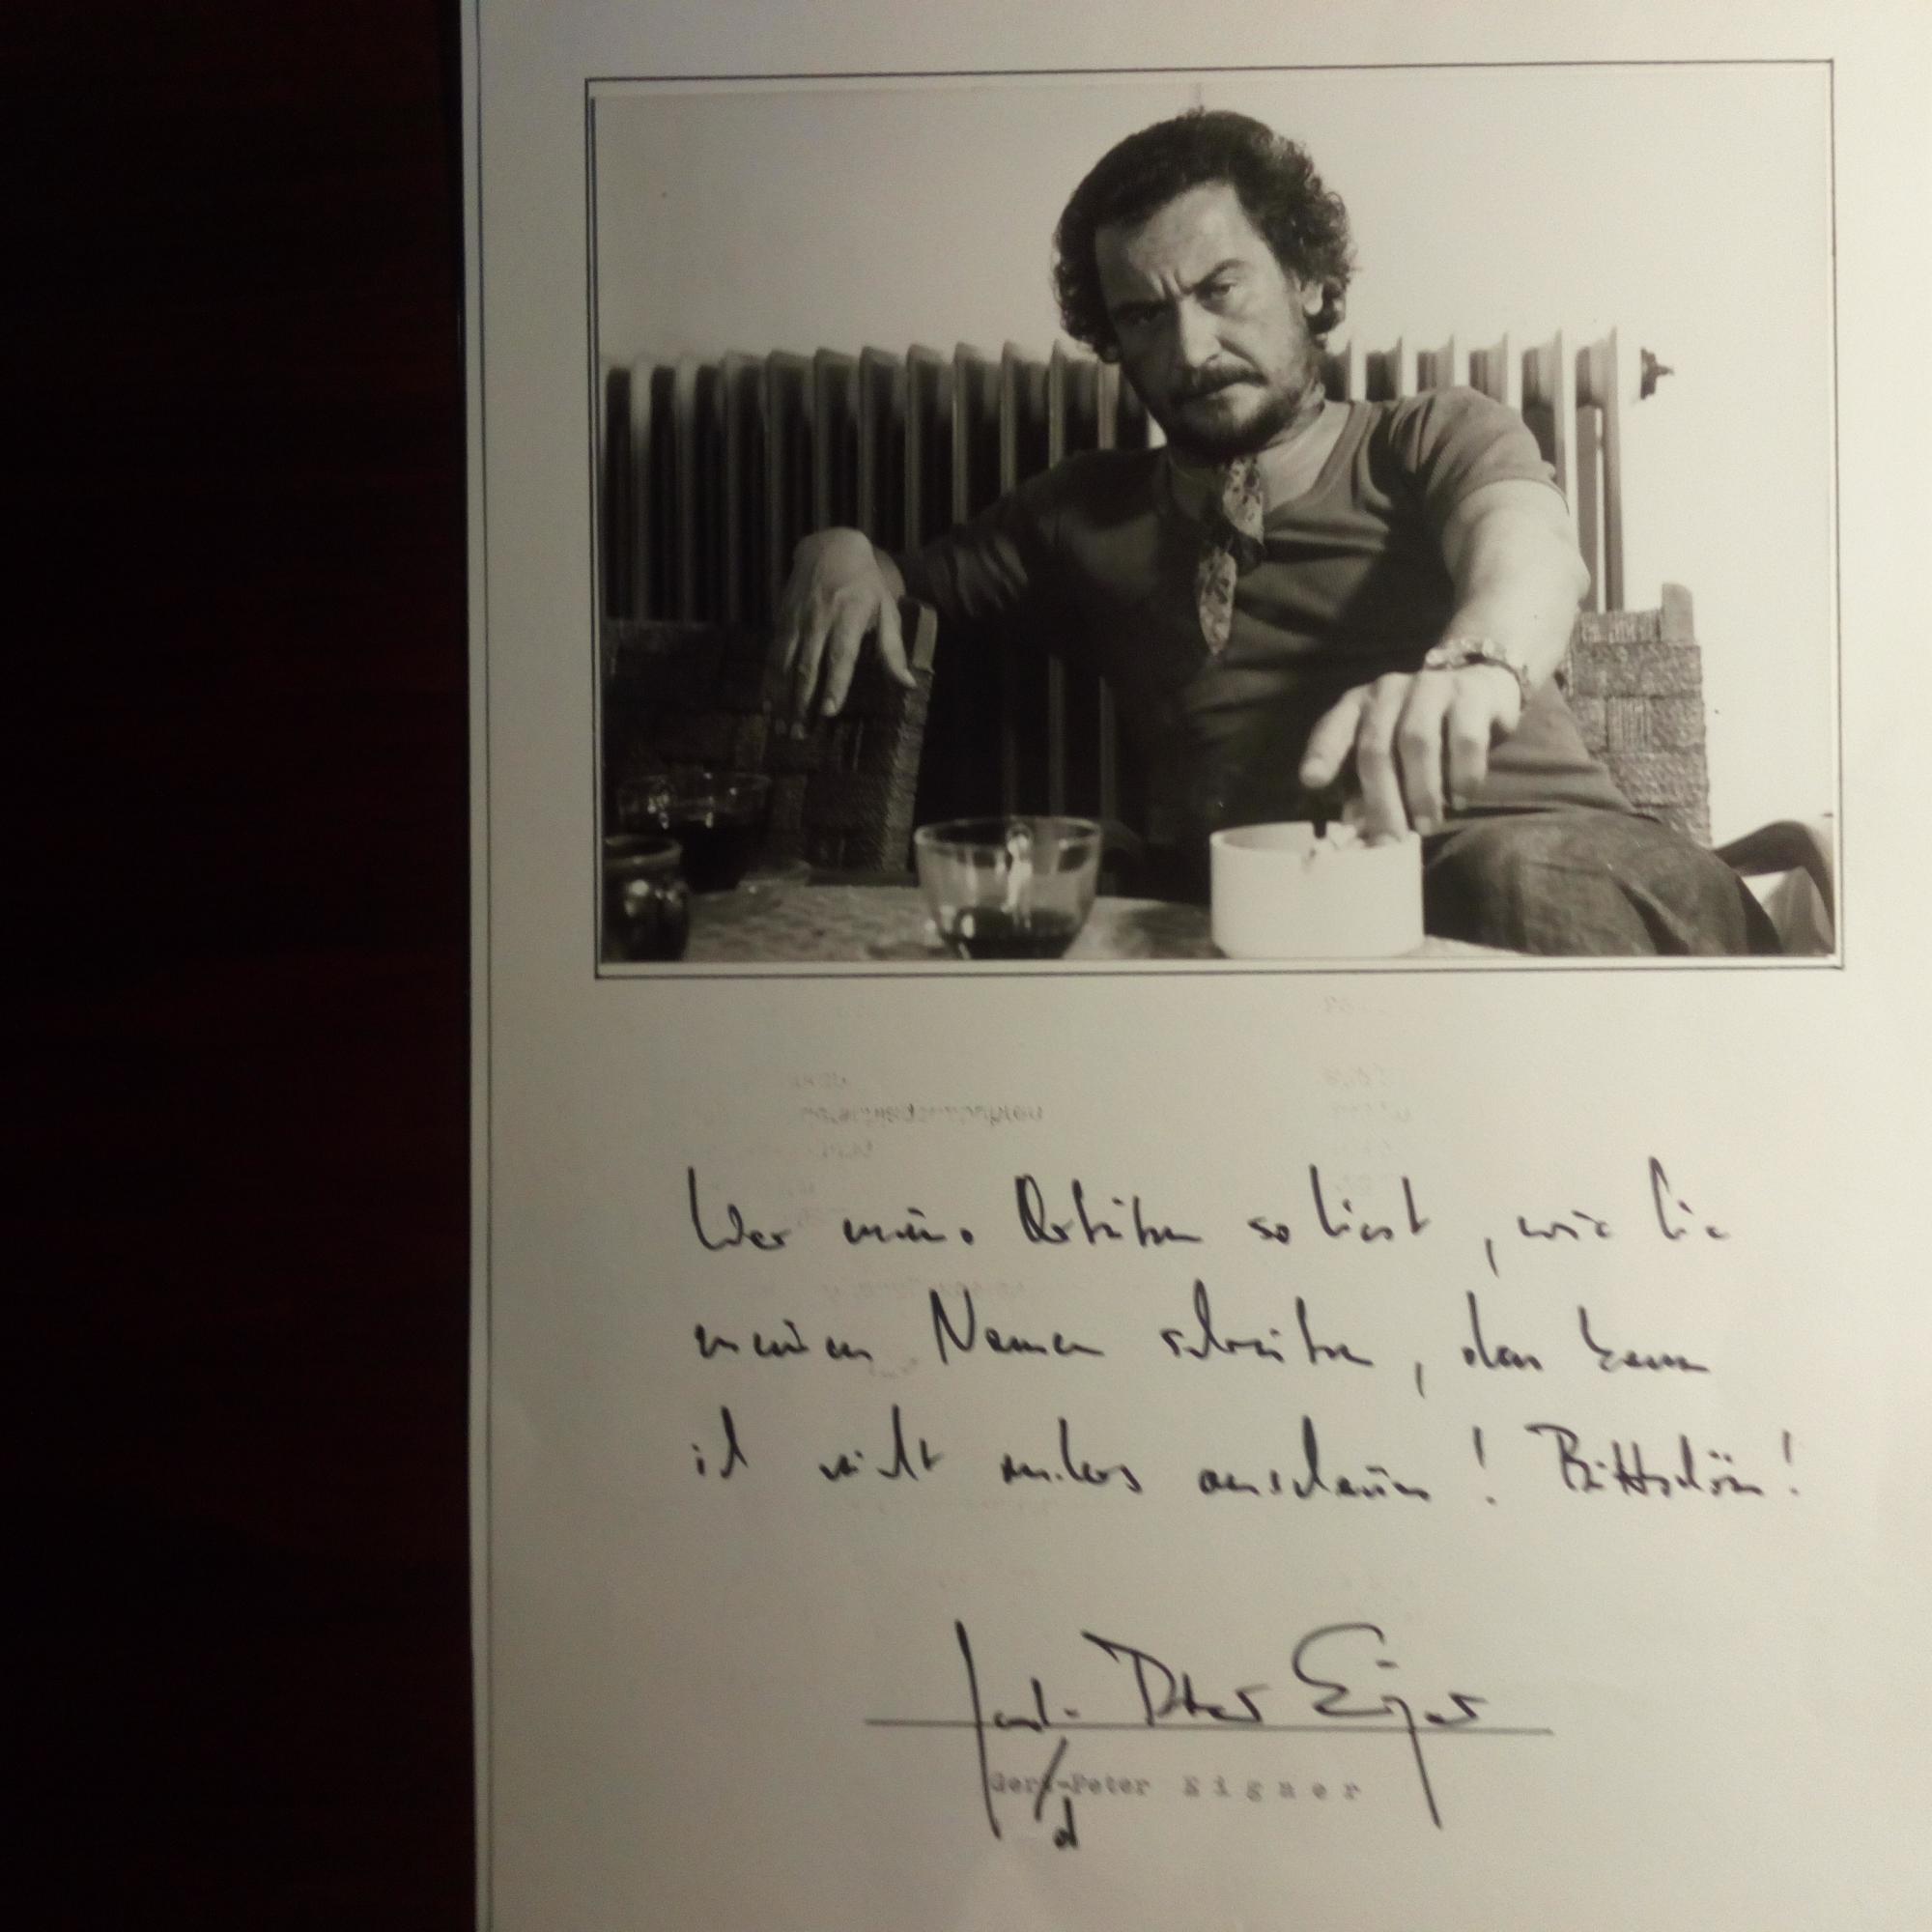 Wer meine Arbeiten so liest, wie Sie
meinen Namen schreiben, den kann
ich nicht ! Bittschön!
Gerd-Peter Eigner
Gert-Peter E i g n e r
d